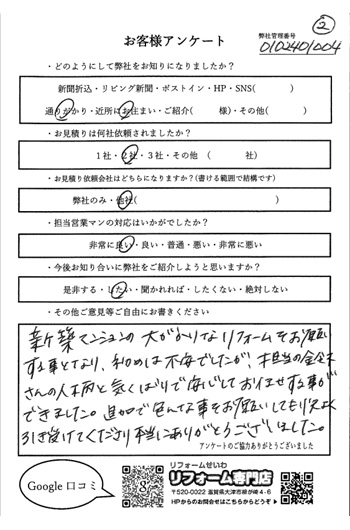 ②
お客様アンケート
弊社管理番号
0102401004
・どのようにして弊社をお知りになりましたか?
新聞折込・リビング新聞・ポストイン・HP・SNS( )
通りがかり・近所にお住まい・ご紹介( 様)・その他( )
・お見積りは何社依頼されましたか?
1社・2社・3社・その他 ( 社)
・お見積り依頼会社はどちらになりますか?(書ける範囲で結構です)
弊社のみ・他社( )
・担当営業マンの対応はいかがでしたか?
非常に良い・良い・普通・悪い・非常に悪い
・今後お知り合いに弊社をご紹介しようと思いますか?
是非する・したい・聞かれれば・したくない・絶対しない
・その他ご意見等ご自由にお書きください
新築マンションの大がかりなリフォームをお願い
する事となり、初めは不安でしたが、担当の
さんの人柄と気くばりで安心しておまかせする事が
できました。追加で色んな事をお願いしても快よく
引き受けてくださり本当にありがとうございました。
アンケートのご協力ありがとうございました
Google口コミ
リフォームせいわ
リフォーム専門店
〒520-0022 滋賀県大津市柳が崎4-6
HPからのお問合せはこちらからどうぞ